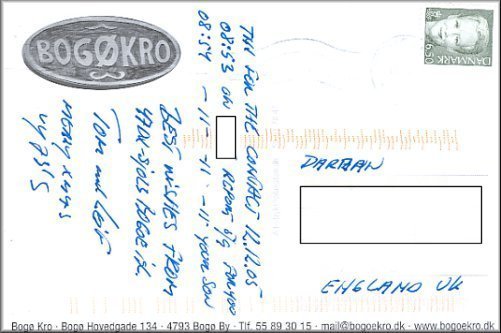 BOGØKRO
DANMARK
6.50
THX FOR THE CONTACT 12.12.05
08:53 ON REPORT 5/9 FOR YOU
08:54 -11- -11- -11- YOUR SON
BEST WISHES FROM
BOGOE IL.
Tom and Leif
MERRY XMAS
DARRAN
ENGLAND UK
Bogø Kro · Bogø Hovedgade 134 · 4793 Bogø By · Tlf. 55 89 30 15 · mail@bogoekro.dk · www.bogoekro.dk